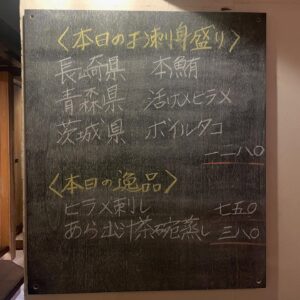 〈本日のお刺身盛り〉
長崎県 本鮪
青森県 活〆ヒラメ
茨城県 ボイルタコ
一二八〇
〈本日の逸品〉
ヒラメ刺し 七五〇
あら出汁茶碗蒸し 三八〇